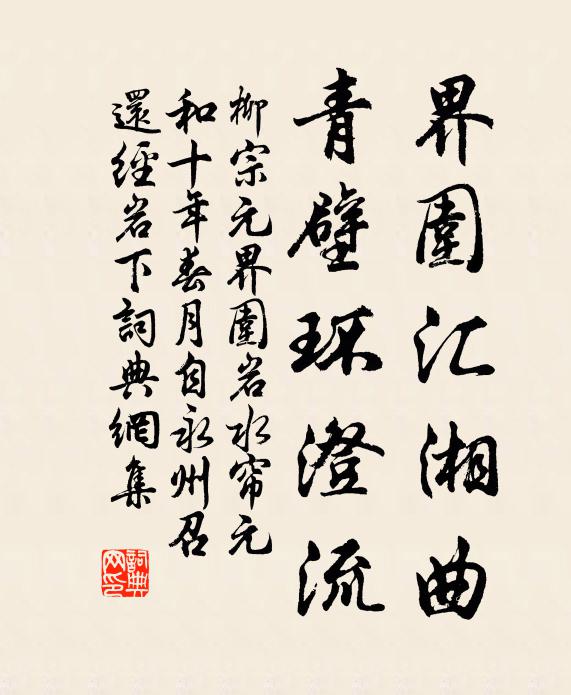 界圍汇湘曲
青壁环澄流
柳宗元界圍岩水帘元
和十年春月自永州召
還經岩下詞典網集
詞典网印